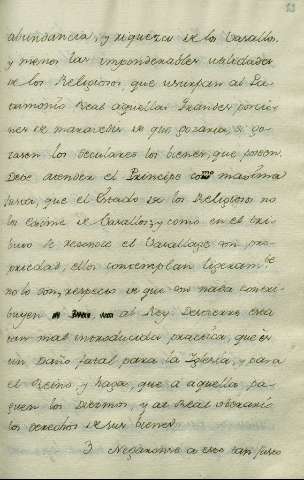 abundancia, y riqueza de los Vasallos,
y menos las imponderables utilidades
de los Religiosos, que usurpan al Pa-
trimonio Real aquellas grandes porcio-
nes de maravedis de que gozaria, si go-
zasen los seculares los bienes, que poseen.
Debe atender el Principe como maxima
fija, que el Estado de los Religiosos no
los exime de Vasallos, y como en el tri-
buto se reconoce el Vasallage con pro-
piedad, ellos contemplan ligeram.te
no lo son, respecto de que con nada contri-
buyen al Rey. Destierre esta
tan mal introducida practica, que es
un daño fatal para la Iglesia, y para
el Reino, y haga, que a aquella pa-
guen los Diezmos, y al Real oberario
los derechos de sus bienes.
3. Negaronse a esto tan